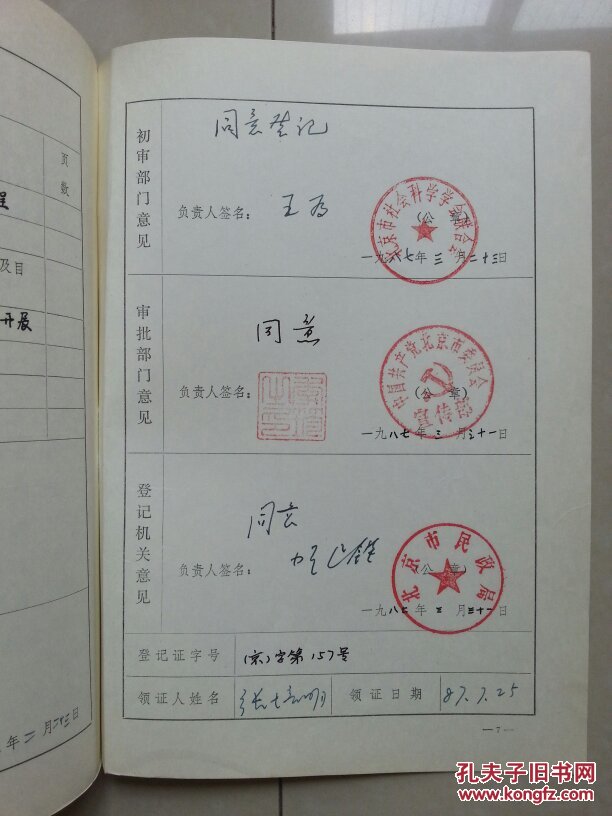 页数
程
及目
开展
年三月廿三日
初审部门意见
同意登记
负责人签名：
北京市社会科学学会联合会
（公章）
一九八七年三月二十三日
审批部门意见
同意
负责人签名：
中国共产党北京市委员会
宣传部
（公章）
一九八七年三月三十一日
登记机关意见
同意
负责人签名：
北京市民政局
（公章）
一九八七年三月三十一日
登记证字号
（京）字第157号
领证人姓名
领证日期
87.7.25
—7—
孔夫子旧书网
www.kongfz.com